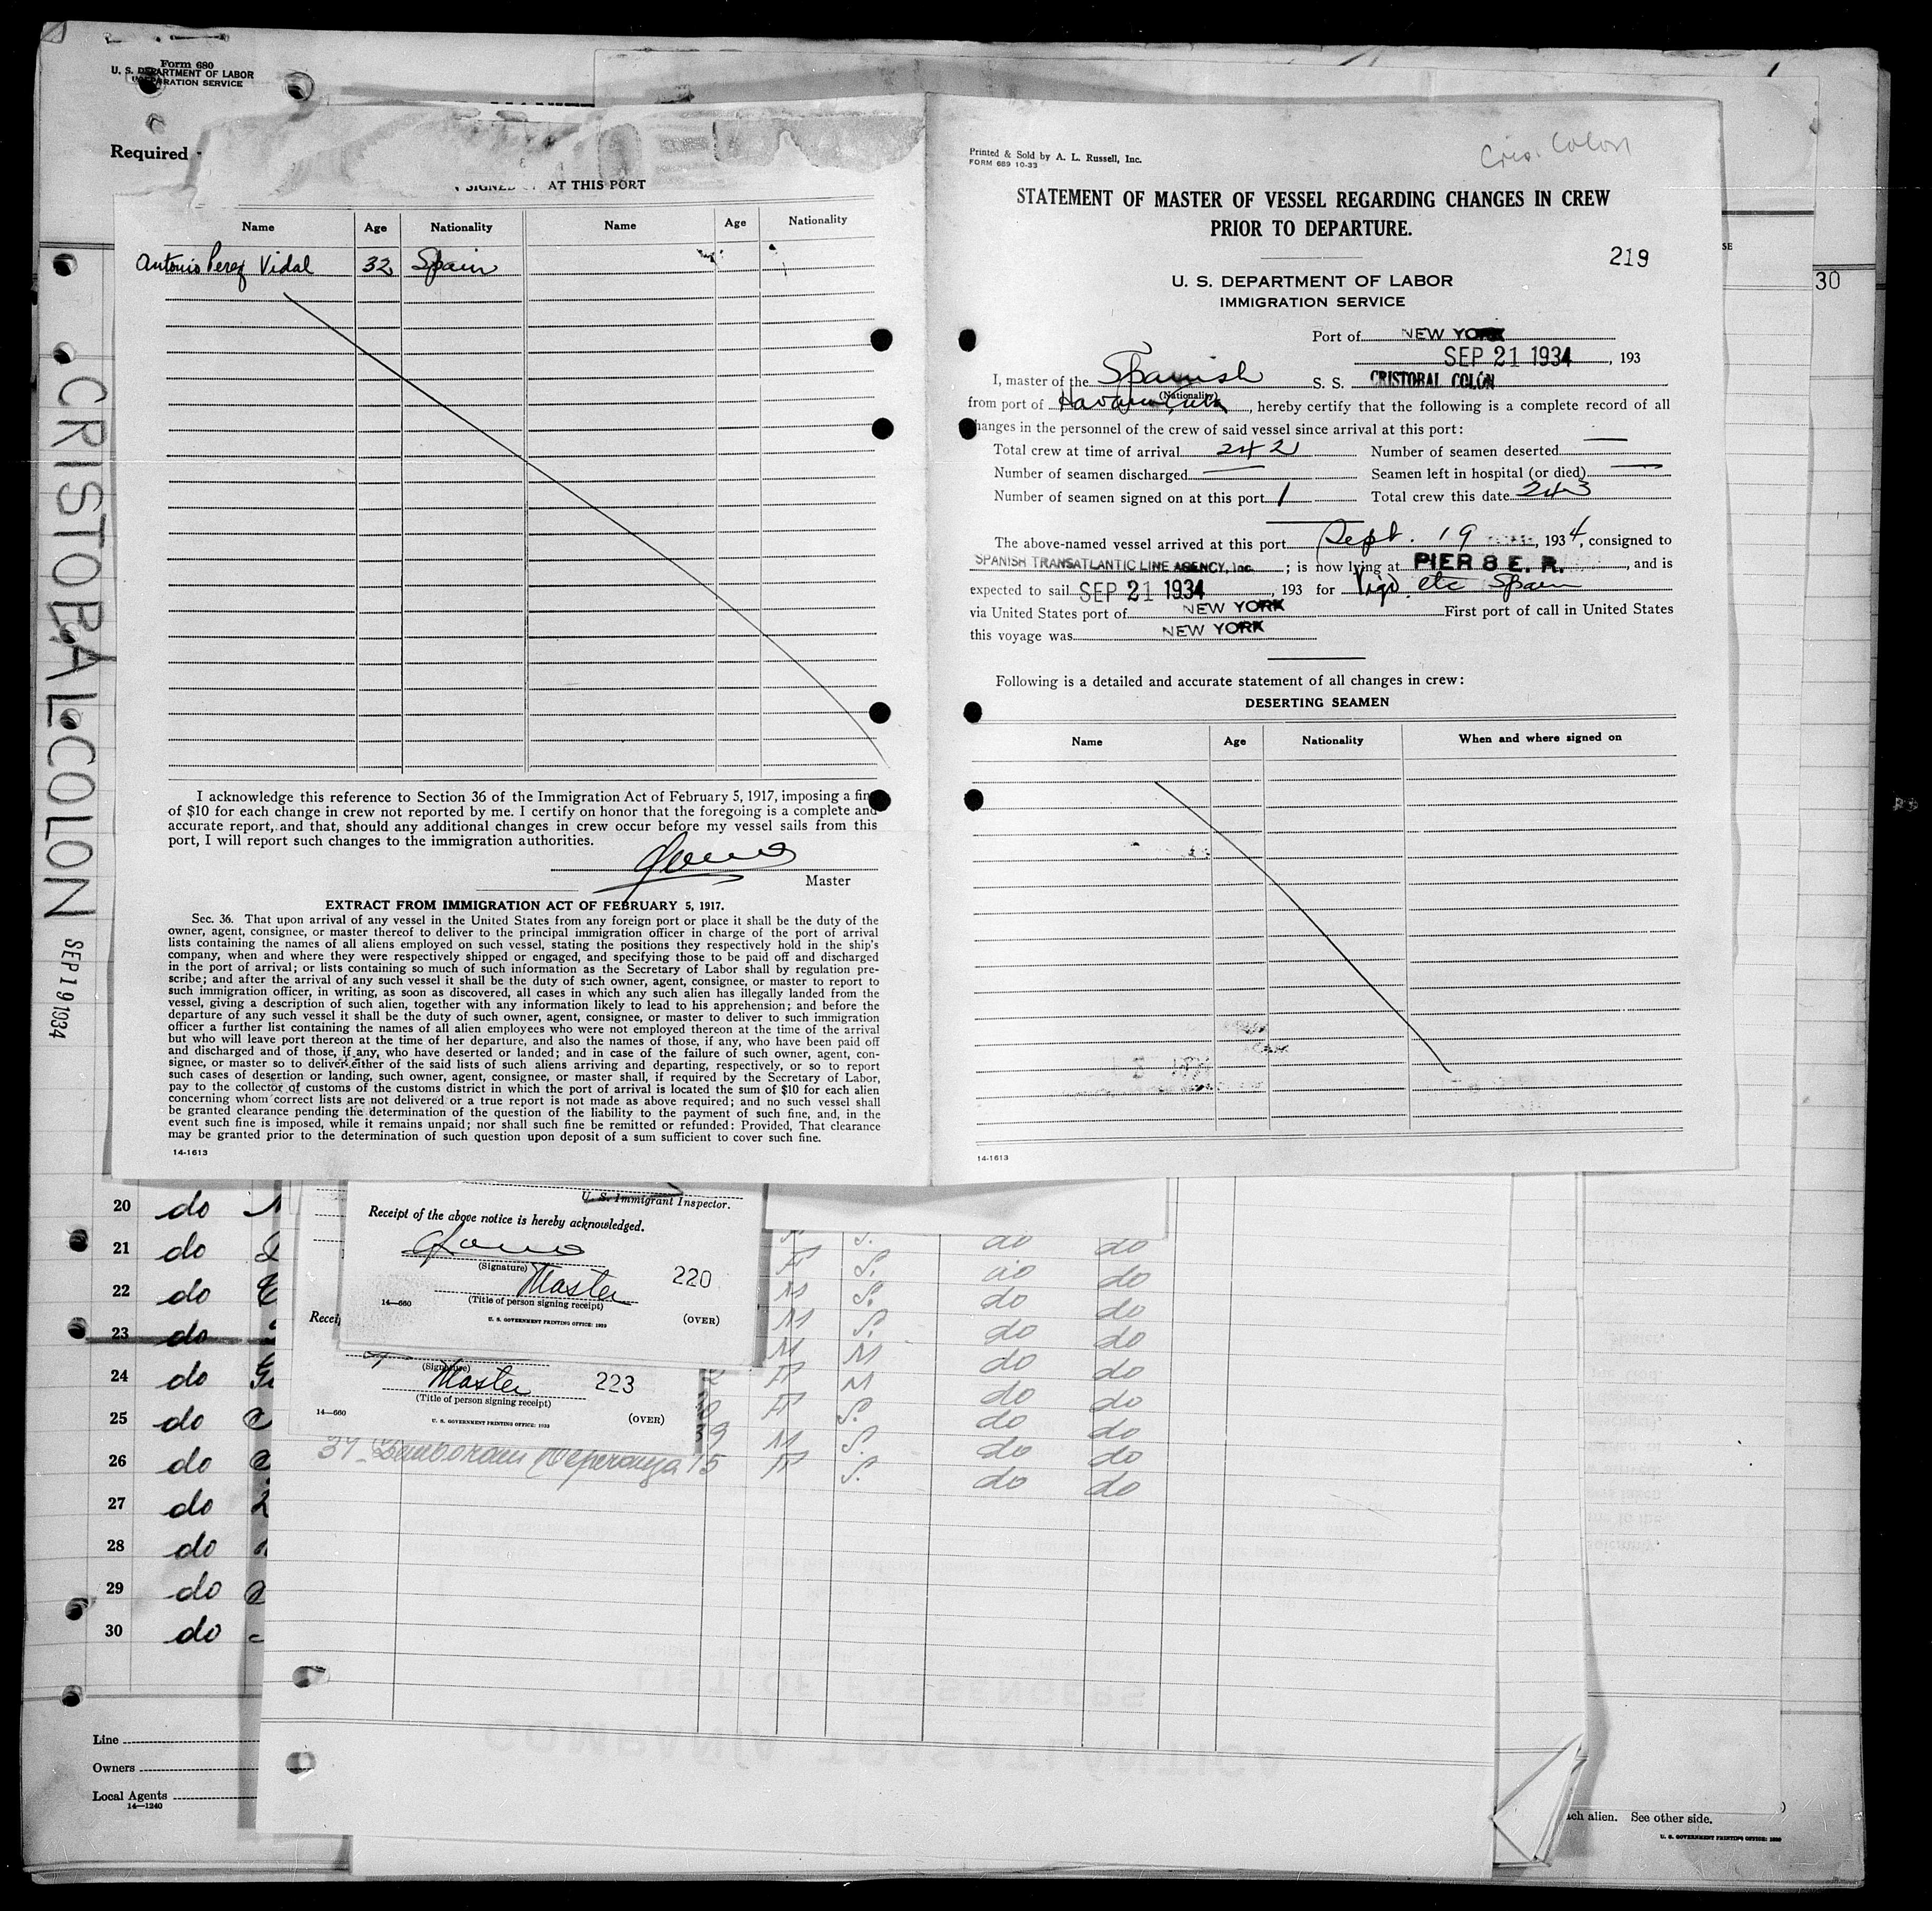 Form 680
U. S. DEPARTMENT OF LABOR
Required
AT THIS PORT
Name Age Nationality Name Age Nationality
Antonio Perez Vidal 32 Spain
I acknowledge this reference to Section 36 of the Immigration Act of February 5, 1917, imposing a fine
of $10 for each change in crew not reported by me. I certify on honor that the foregoing is a complete and
accurate report, and that, should any additional changes in crew occur before my vessel sails from this
port, I will report such changes to the immigration authorities.
Master
EXTRACT FROM IMMIGRATION ACT OF FEBRUARY 5, 1917.
Sec. 36. That upon arrival of any vessel in the United States from any foreign port or place it shall be the duty of the
owner, agent, consignee, or master thereof to deliver to the principal immigration officer in charge of the port of arrival
lists containing the names of all aliens employed on such vessel, stating the positions they respectively hold in the ship's
company, when and where they were respectively shipped or engaged, and specifying those to be paid off and discharged
in the port of arrival; or lists containing so much of such information as the Secretary of Labor shall by regulation pre-
scribe; and after the arrival of any such vessel it shall be the duty of such owner, agent, consignee, or master to report to
such immigration officer, in writing, as soon as discovered, all cases in which any such alien has illegally landed from the
vessel, giving a description of such alien, together with any information likely to lead to his apprehension; and before the
departure of any such vessel it shall be the duty of such owner, agent, consignee, or master to deliver to such immigration
officer a further list containing the names of all alien employees who were not employed thereon at the time of the arrival
but who will leave port thereon at the time of her departure, and also the names of those, if any, who have been paid off
and discharged and of those, if any, who have deserted or landed; and in case of the failure of such owner, agent, con-
signee, or master so to deliver either of the said lists of such aliens arriving and departing, respectively, or so to report
such cases of desertion or landing, such owner, agent, consignee, or master shall, if required by the Secretary of Labor,
pay to the collector of customs of the customs district in which the port of arrival is located the sum of $10 for each alien
concerning whom correct lists are not delivered or a true report is not made as above required; and no such vessel shall
be granted clearance pending the determination of the question of the liability to the payment of such fine, and, in the
event such fine is imposed, while it remains unpaid; nor shall such fine be remitted or refunded: Provided, That clearance
may be granted prior to the determination of such question upon deposit of a sum sufficient to cover such fine.
14-1613
Cris. Colon
Printed & Sold by A. L. Russell, Inc.
FORM 689 10-33
STATEMENT OF MASTER OF VESSEL REGARDING CHANGES IN CREW
PRIOR TO DEPARTURE.
219
U. S. DEPARTMENT OF LABOR
IMMIGRATION SERVICE
Port of NEW YORK
SEP 21 1934, 193
I, master of the Spanish S. S. CRISTOBAL COLÓN
(Nationality)
from port of Havana Cuba, hereby certify that the following is a complete record of all
changes in the personnel of the crew of said vessel since arrival at this port:
Total crew at time of arrival 242 Number of seamen deserted —
Number of seamen discharged — Seamen left in hospital (or died) —
Number of seamen signed on at this port 1 Total crew this date 243
The above-named vessel arrived at this port Sept. 19, 1934, consigned to
SPANISH TRANSATLANTIC LINE AGENCY, Inc. ; is now lying at PIER 8 E. R., and is
expected to sail SEP 21 1934, 193 for Vigo. etc Spain
via United States port of NEW YORK First port of call in United States
this voyage was NEW YORK
Following is a detailed and accurate statement of all changes in crew:
DESERTING SEAMEN
Name Age Nationality When and where signed on
14-1613
30
CRISTOBAL COLON SEP 19 1934
20 do
21 do
22 do
23 do
24 do
25 do
26 do
27 do
28 do
29 do
30 do
Line
Owners
Local Agents
14—1240
U. S. Immigrant Inspector.
Receipt of the above notice is hereby acknowledged.
(Signature)
Master 220
(Title of person signing receipt)
14—660 U. S. GOVERNMENT PRINTING OFFICE: 1933 (OVER)
(Signature)
Master 223
(Title of person signing receipt)
14—660 U. S. GOVERNMENT PRINTING OFFICE: 1933 (OVER)
S. do do
F S. do do
M S. do do
M S. do do
M M do do
F M do do
F S. do do
M S. do do
15 F S. do do
ach alien. See other side.
U. S. GOVERNMENT PRINTING OFFICE: 1930